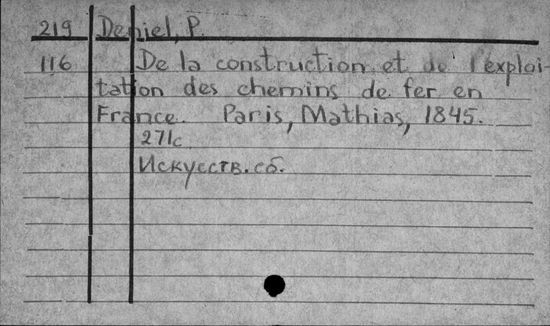 219 Deniel, P.
116 De la construction et de l'exploi-
tation des chemins de fer en
France. Paris, Mathias, 1845.
271c
Искусств. сб.